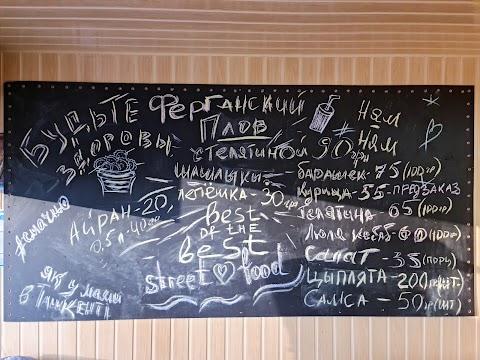 БУДЬТЕ
ЗДОРОВЫ
Ферганский
ПЛОВ
с телятиной 90 грн
Ням
Ням
шашлыки - барашек - 75 (100гр)
курица - 55 - ПРЕДЗАКАЗ
лепёшка - 30 грн
телятина - 65 (100гр)
Люля кебаб - 60 (100гр)
Салат - 35 (порц)
ЦЫПЛЯТА - 200
САМСА - 50 гр (шт)
#смачно
АЙРАН - 20
0,5 л - 40
Best
OF THE
BeST
street food
як у мамий
в Ташкенті